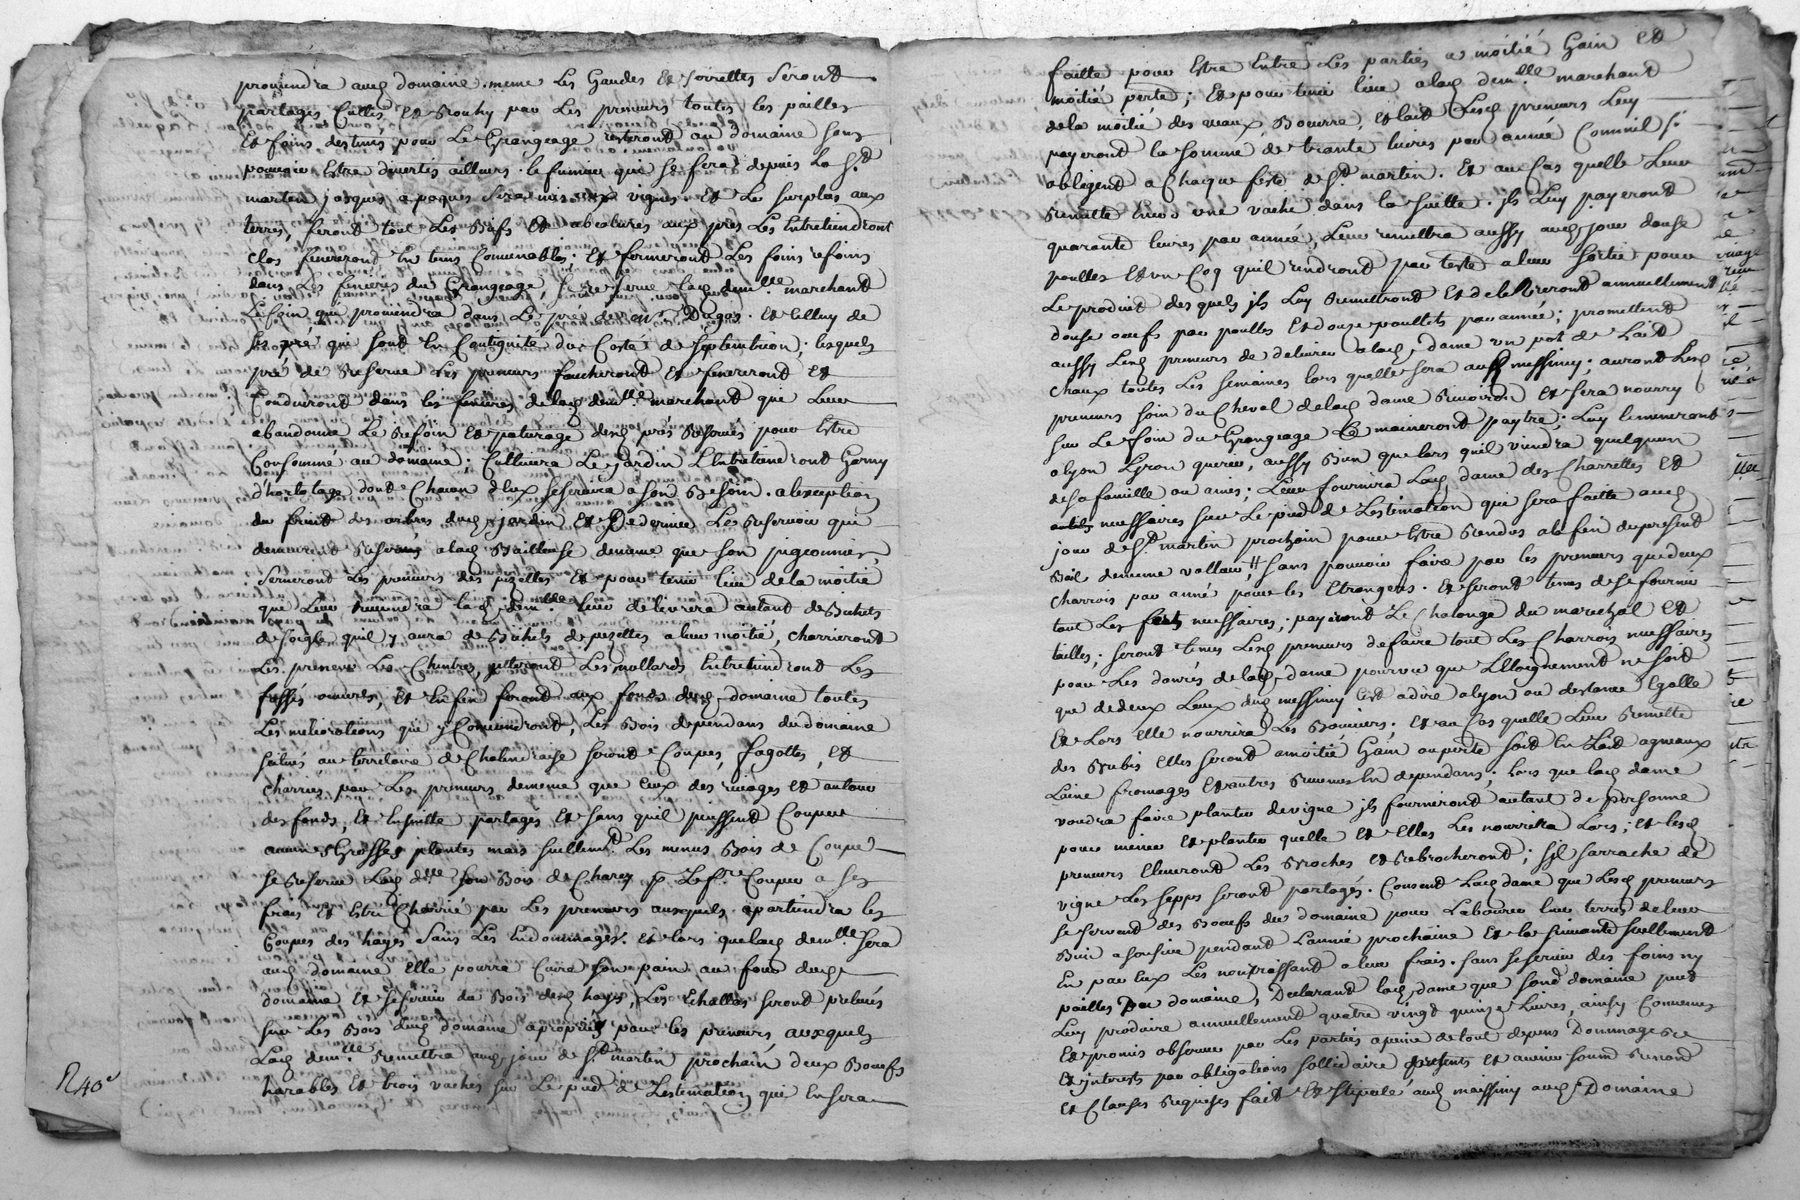 proviendra aud domaine. meme Les Gaudes Et Sorrettes Seront
partagés, Cullis, Et par Les preneurs toutes les pailles
Et foins destinés pour Le Grangeage resteront au Domaine sans
pouvoir Estre divertis ailleurs. le fumier qui se fera depuis La St
martin jusques a paques sera mis aux vignes Et Le surplus aux
terres, feront tout Les Et abeolures aux prés Les Entretiendront
clos feneront En tems Convenables, Et fermeront Les foins refoins
dans Les fenieres du Grangeage, se reserve Lad demlle marchand
Le foin qui proviendra dans Le pré de mr Dugas. Et Celluy de
ses pré qui sont En Contiguite du Costé de septentrion; lesquels
pré de Reserve les preneurs faucheront Et feneront Et
Conduiront dans les fenieres de lad demlle marchand qui Leur
abandonne Le Refoin Et paturage desd prés Reservés pour Estre
Consommé au domaine; Cultivera Le jardin L Entretiendront Garny
d'hortolage dont Chacun d'Eux se servira a son Besoin. a lexception
du fruit des arbres dud jardin Et De derrier Le Reservoir qui
demeurent Reservés a lad Bailleuse de meme que son pigeonnier,
Semeront Les preneurs des pezettes Et pour tenir lieu de la moitié
que Leur lad demlle leur delivrera autant de Bichets
de seigle quil y aura de Bichets de pezettes a leur moitié, charrieront
Les preneurs Les Cheintres, jetteront Les mollards Entretiendront Les
fossés ouverts, Et Enfin feront aux fonds dud domaine toutes
Les meliorations qui y Conviendront, Les Bois dependans du domaine
situés au territoire de Chalindraise seront Coupés, fagottes, Et
Charriés par Les preneurs de meme que Ceux des rivages Et autour
des fonds, Et Ensuitte partagés Et sans quil puissent Couper
aucunes Grosses plantes mais seullemt Les menus Bois de Coupe
se Reserve Lad dlle son Bois de Charey p Le fr Couper a ses
frais Et Estre Charrié par Les preneurs ausquels apartiendra les
Coupes des hayes sans Les Endommages. Et lors que lad demlle sera
aud domaine Elle pourra Cuire son pain au four dud
domaine Et se servir du Bois desd hayes, Les Echallas seront prelevés
sur Les Bois dud domaine apropriés par les preneurs auxquels
Lad demlle Remettra aud jour de St martin prochain deux Bœufs
harables Et trois vaches sur Le pied de Lestimation qui En sera
R 40e
faitte pour Estre Entre Les parties a moitié Gain Et
moitié perte; Et pour tenir lieu a lad demlle marchand
de la moitié des veaux Beurre, Et lait Lesd preneurs Luy
payeront la somme de trante livres par année
obligent a Chaque feste de St martin. Et au Cas quelle Leur
Remitte Encor une vache dans la suitte. jls Luy payeront
quarante livres par année, Leur remettra aussy aud jour douse
poulles Et un Coq quil rendront par teste a leur sortie pour
Le produit des quels jls Luy Remettront Et delivreront annuellement
douse oeufs par poulles Et douse poullets par année; promettent
aussy Lesd preneurs de delivrer a lad dame un pot de Lait
Chaux toutes Les semaines lors quelle sera aud messimy; auront Lesd
preneurs soin du Cheval de lad dame Et sera nourry
sur Le foin du Grangeage Le maineront paytre; Luy lameneront
a lyon Lyron querir, aussy Bien que lors quil viendra quelquun
de sa famille ou amis; Leur fournira Lad dame des Charrettes Et
outils nessaires sur Le pied de Lestimation qui sera faitte aud
jour de St martin prochain pour Estre Rendus a la fin du present
Bail de meme valleur, # sans pouvoir faire par les preneurs que deux
Charrois par anné pour les Etrangers. Et seront tenus de se fournir
tout Les nessaires; payeront Le Chalonge du marechal Et
tailles; seront tenus Lesd preneurs de faire tout Les Charrois nessaires
pour Les danrés de lad dame pourvu que LEloignement ne soit
que de deux Lieux dud messimy C'est adire a lyon ou distance Egalle
Et Lors Elle nourrira Les Bouviers; Et au Cas quelle Leur Remitte
des Brebis Elles seront a moitié Gain ou perte soit En Lait agneaux
Laine fromages Et autres Revenus En dependans; lors que lad dame
voudra faire planter de vigne jls fourniront autant de personne
pour miner Et planter quelle Et Elles Les nourrira Lors; Et lesd
preneurs Eleveront Les Broches Et Rebrocheront; Sjl sarrache de
vigne Les sepps seront partagés. Consent Lad dame que Lesd preneurs
se servent des Boeufs du domaine pour Labourer leur terres de leur
Bien a soucieu pendant L'année prochaine Et la suivante seullement
En par Eux Les nourrissant a leur frais. sans se servir des foins ny
pailles Du domaine; Declarant lad dame que sond domaine peut
Luy produire annuellement quatre vingt quinze Livres, ainsy Convenus
Et promis observer par Les parties a peine de tout depens Dommages
Et jnterets par obligations sollidaire presents Et avenir
Et Clauses Requises fait Et stipulé aud messimy aud Domaine